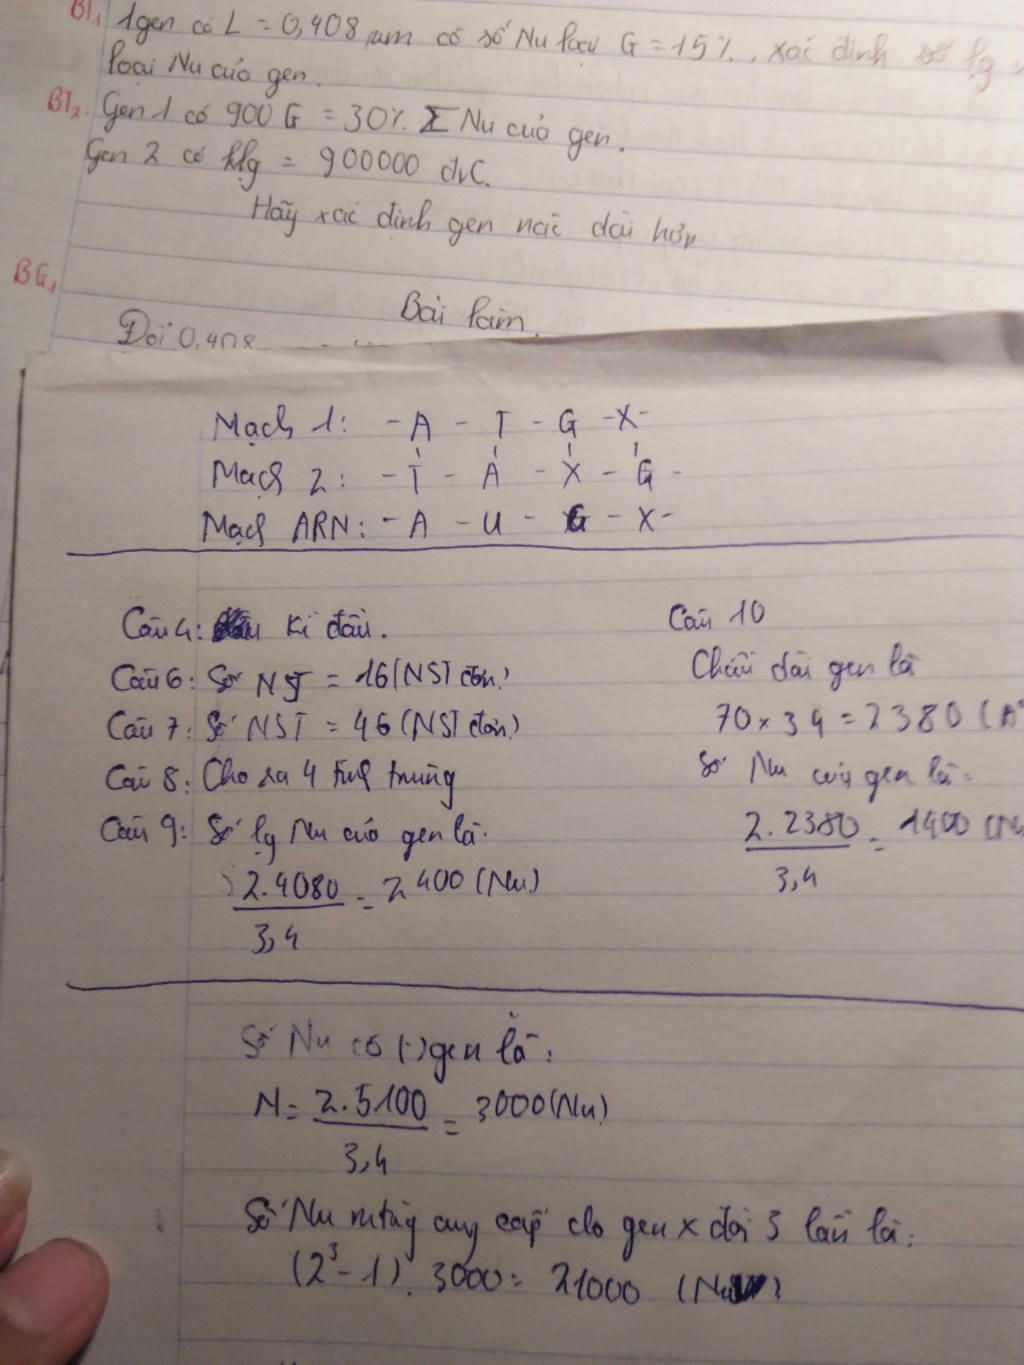 BT1 1gen có L = 0,408 µm có số Nu loại G = 15%, xác định số lg
loại Nu của gen.
BT2: Gen 1 có 900 G = 30% Σ Nu của gen.
Gen 2 có klg = 900000 đvC.
Hãy xác định gen nào dài hơn
BG1
Bài làm.
Đổi 0,408
Mạch 1: - A - T - G - X -
Mạch 2: - T - A - X - G -
Mạch ARN: - A - U - G - X -
Câu 4: kì đầu.
Câu 6: Số NST = 16 (NST đơn)
Câu 7: Số NST = 46 (NST đơn)
Câu 8: Cho ra 4 tinh trùng
Câu 9: Số lg Nu của gen là.
2.4080 = 2400 (Nu)
3,4
Câu 10
Chiều dài gen là
70 x 34 = 2380 (A°
Số Nu của gen là:
2.2380 = 1400 (Nu
3,4
Số Nu có (-) gen là:
N = 2.5100 = 3000 (Nu)
3,4
Số Nu mtrg cung cấp cho gen x đôi 3 lần là:
(2³ - 1). 3000 = 21000 (Nu)